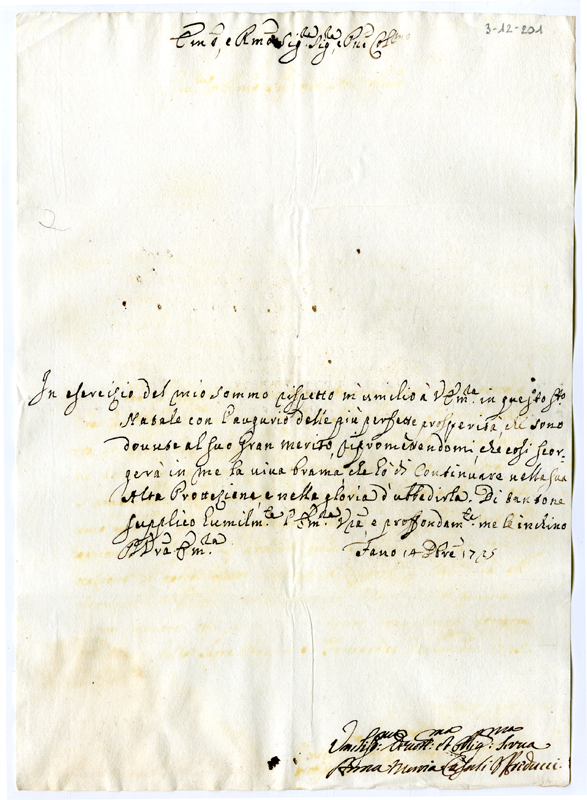 3-12-201
Em.º, e Rmo Sig.re Sig.re, e Pñe Col.mo
In esercizio del mio sommo rispetto m'umilio à V. Em.za in questo S.to
Natale con l'augurio delle più perfette prosperità, che sono
dovute al suo gran merito, ripromettendomi che così scor-
gerà in me la viva brama che hò di continuare nella sua
Alta Protezione, e nella gloria d'ubbidirla. Di tanto ne
supplico humilm.te l'Em.za Vr̃a e proffondam.te me le inchino
Di Vr̃a Em.za Fano 14 Dbre 1725
Umiliss.ma Devot.ma et Oblig.ma Serva
Anna Maria